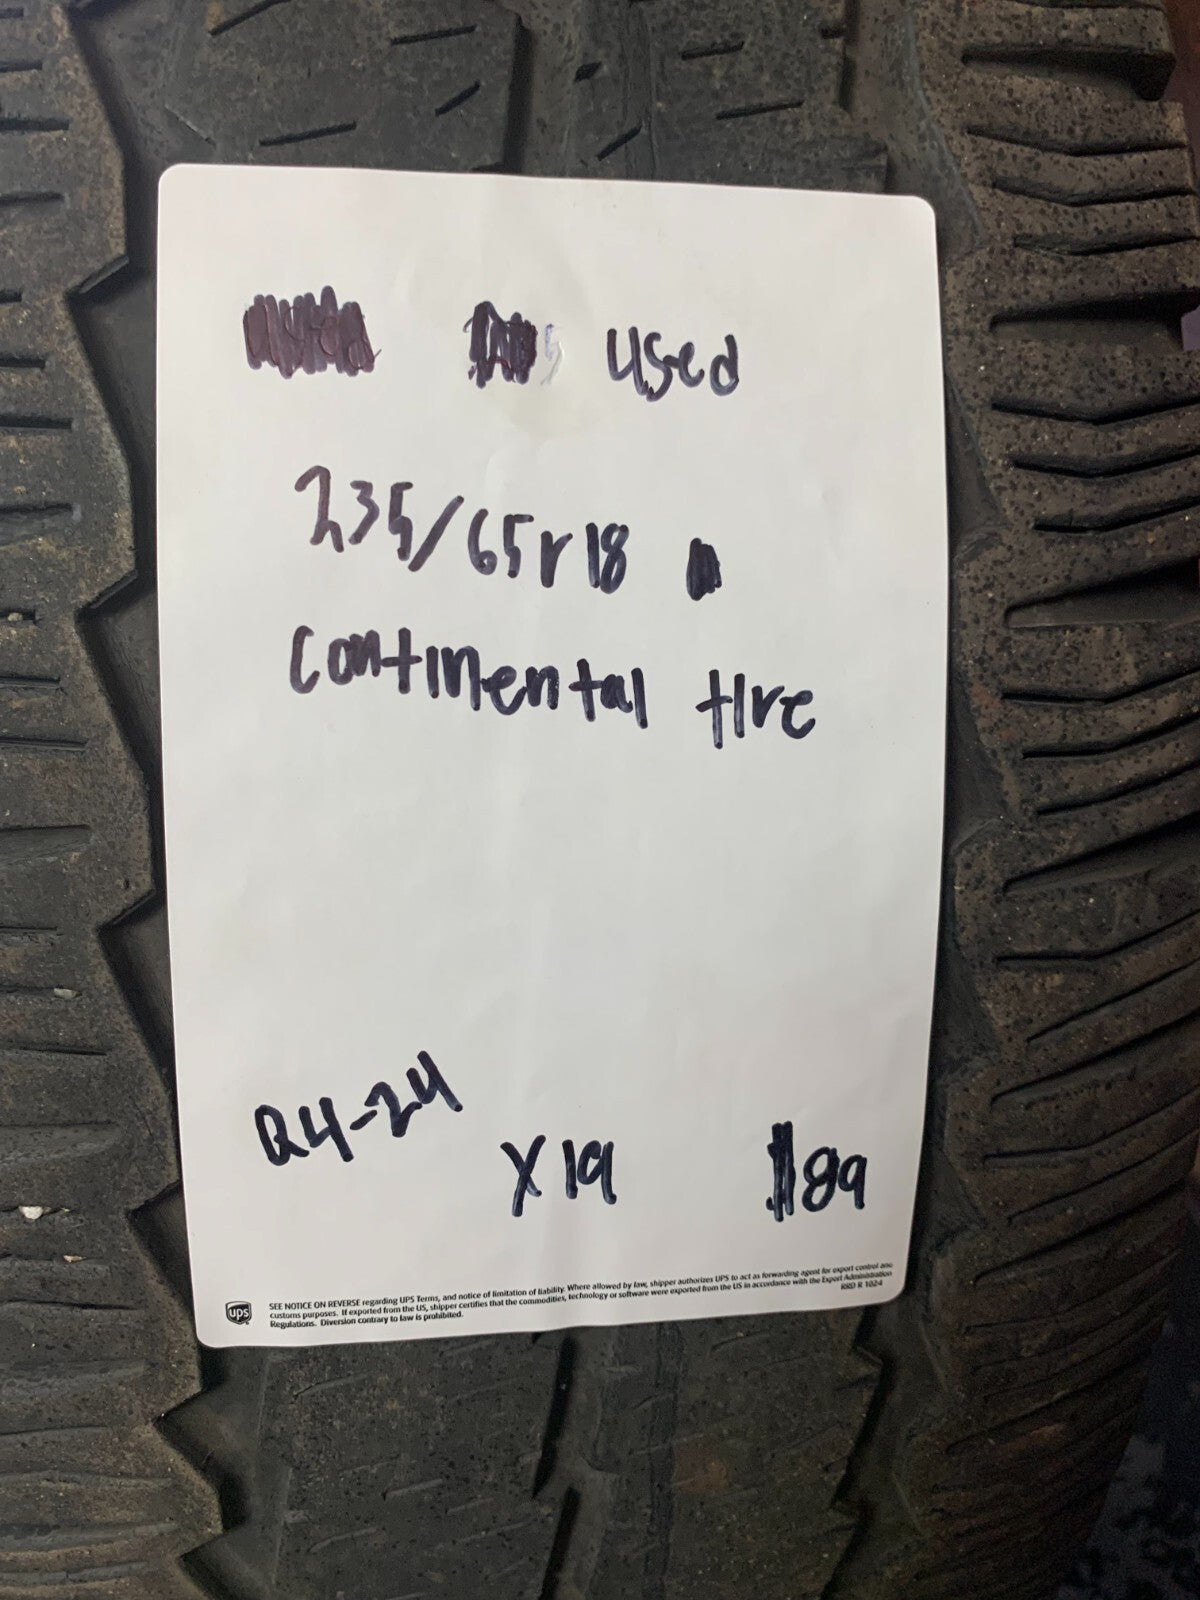 used
235/65r18
continental tire
Q4-24
X19
$89
ups
SEE NOTICE ON REVERSE regarding UPS Terms, and notice of limitation of liability. Where allowed by law, shipper authorizes UPS to act as forwarding agent for export control and
customs purposes. If exported from the US, shipper certifies that the commodities, technology or software were exported from the US in accordance with the Export Administration
Regulations. Diversion contrary to law is prohibited.
RRD R 1024